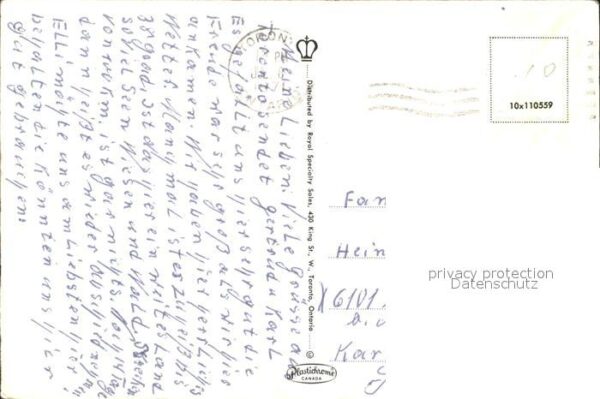 Meine Lieben! Viele Grüsse aus
Toronto sendet Gertrud u. Karl
Es gefällt uns hier sehr gut die
Freude war sehr groß als wir hier
ankamen. Wir haben hier herrliches
Wetter. Manchmal ist es zu heiß bis
38 Grad. Ist das hier ein weites Land
soviel Seen Wiesen und Wald.
von uns ist gar nichts
dann heißt es wieder Abschied nehmen
Elli möchte uns am liebsten hier
behalten die können uns hier
gut gebrauchen.
TORONTO
PM
Distributed by Royal Specialty Sales, 430 King St., W. Toronto, Ontario
©
Plastichrome
CANADA
10x110559
Fam
Hein
6101
Kar
privacy protection
Datenschutz